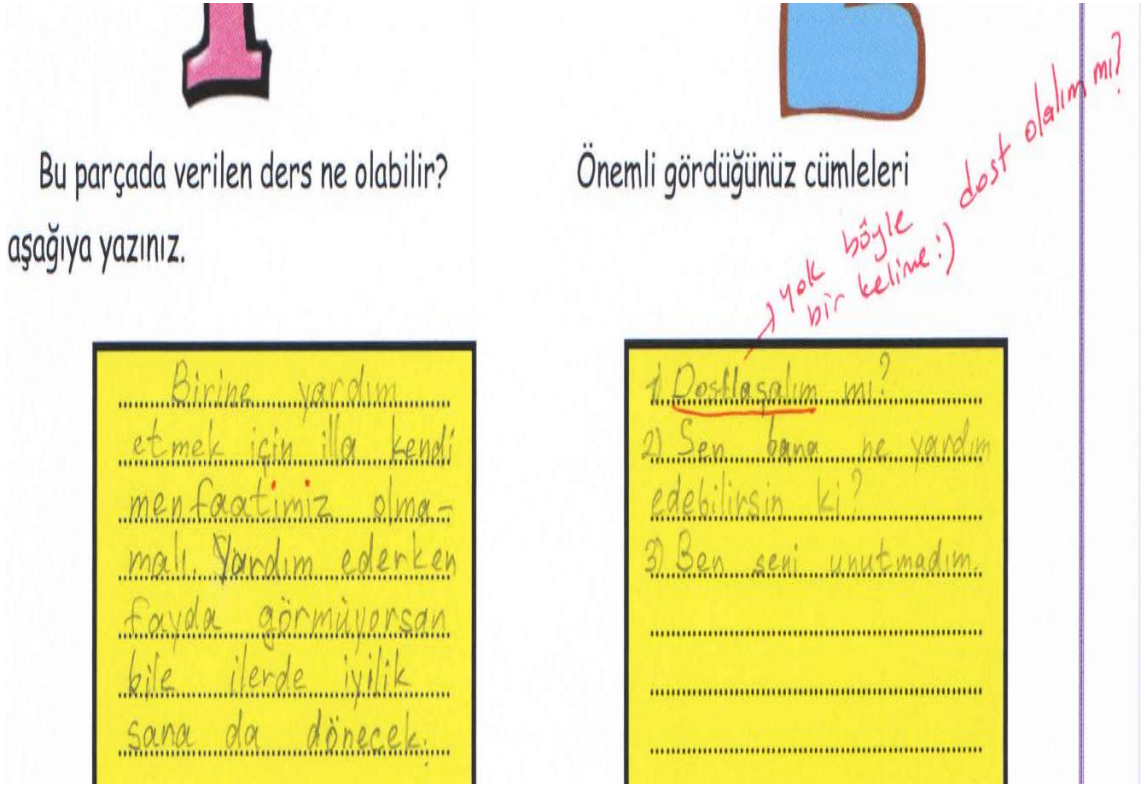 Bu parçada verilen ders ne olabilir?
aşağıya yazınız.
Birine yardım
etmek için illa kendi
menfaatimiz olma-
malı. Yardım ederken
fayda görmüyorsan
bile ilerde iyilik
sana da dönecek.
Önemli gördüğünüz cümleleri
→ yok böyle
bir kelime :)
dost olalım mı?
1) Dostlaşalım mı?
2) Sen bana ne yardım
edebilirsin ki?
3) Ben seni unutmadım.